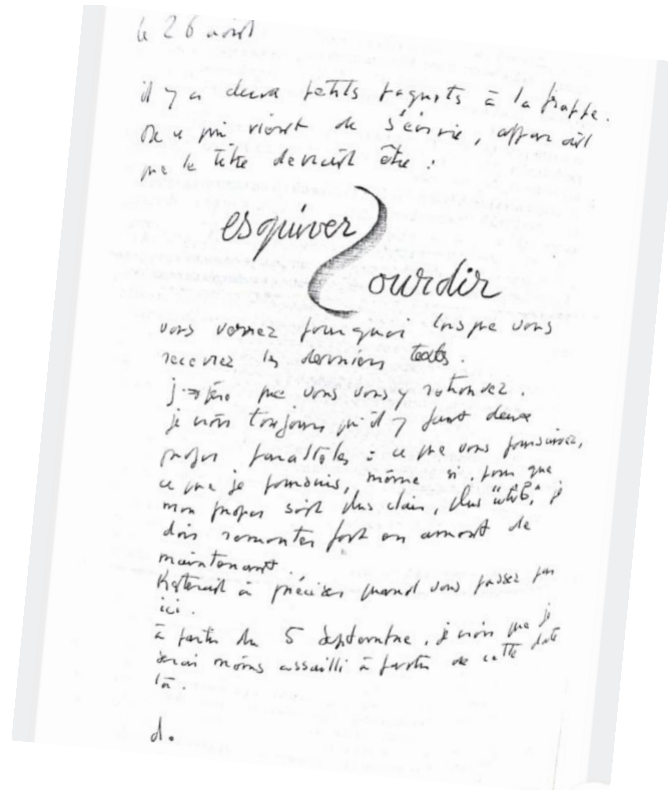 le 26 août
il y a deux petits paquets à la frappe.
De ce qui vient de s'écrire, apparaît
que le titre devrait être :
esquiver
ourdir
vous verrez pourquoi lorsque vous
recevrez les derniers textes.
j'espère que vous vous y retrouvez.
je crois toujours qu'il y faut deux
propos parallèles : ce que vous poursuivez,
ce que je poursuis, même si, pour que
mon propos soit plus clair, plus "utile," je
dois remonter fort en amont de
maintenant.
Resterait à préciser quand vous passez par
ici.
à partir du 5 septembre, je crois que je
serai moins assailli à partir de cette date
là.
d.